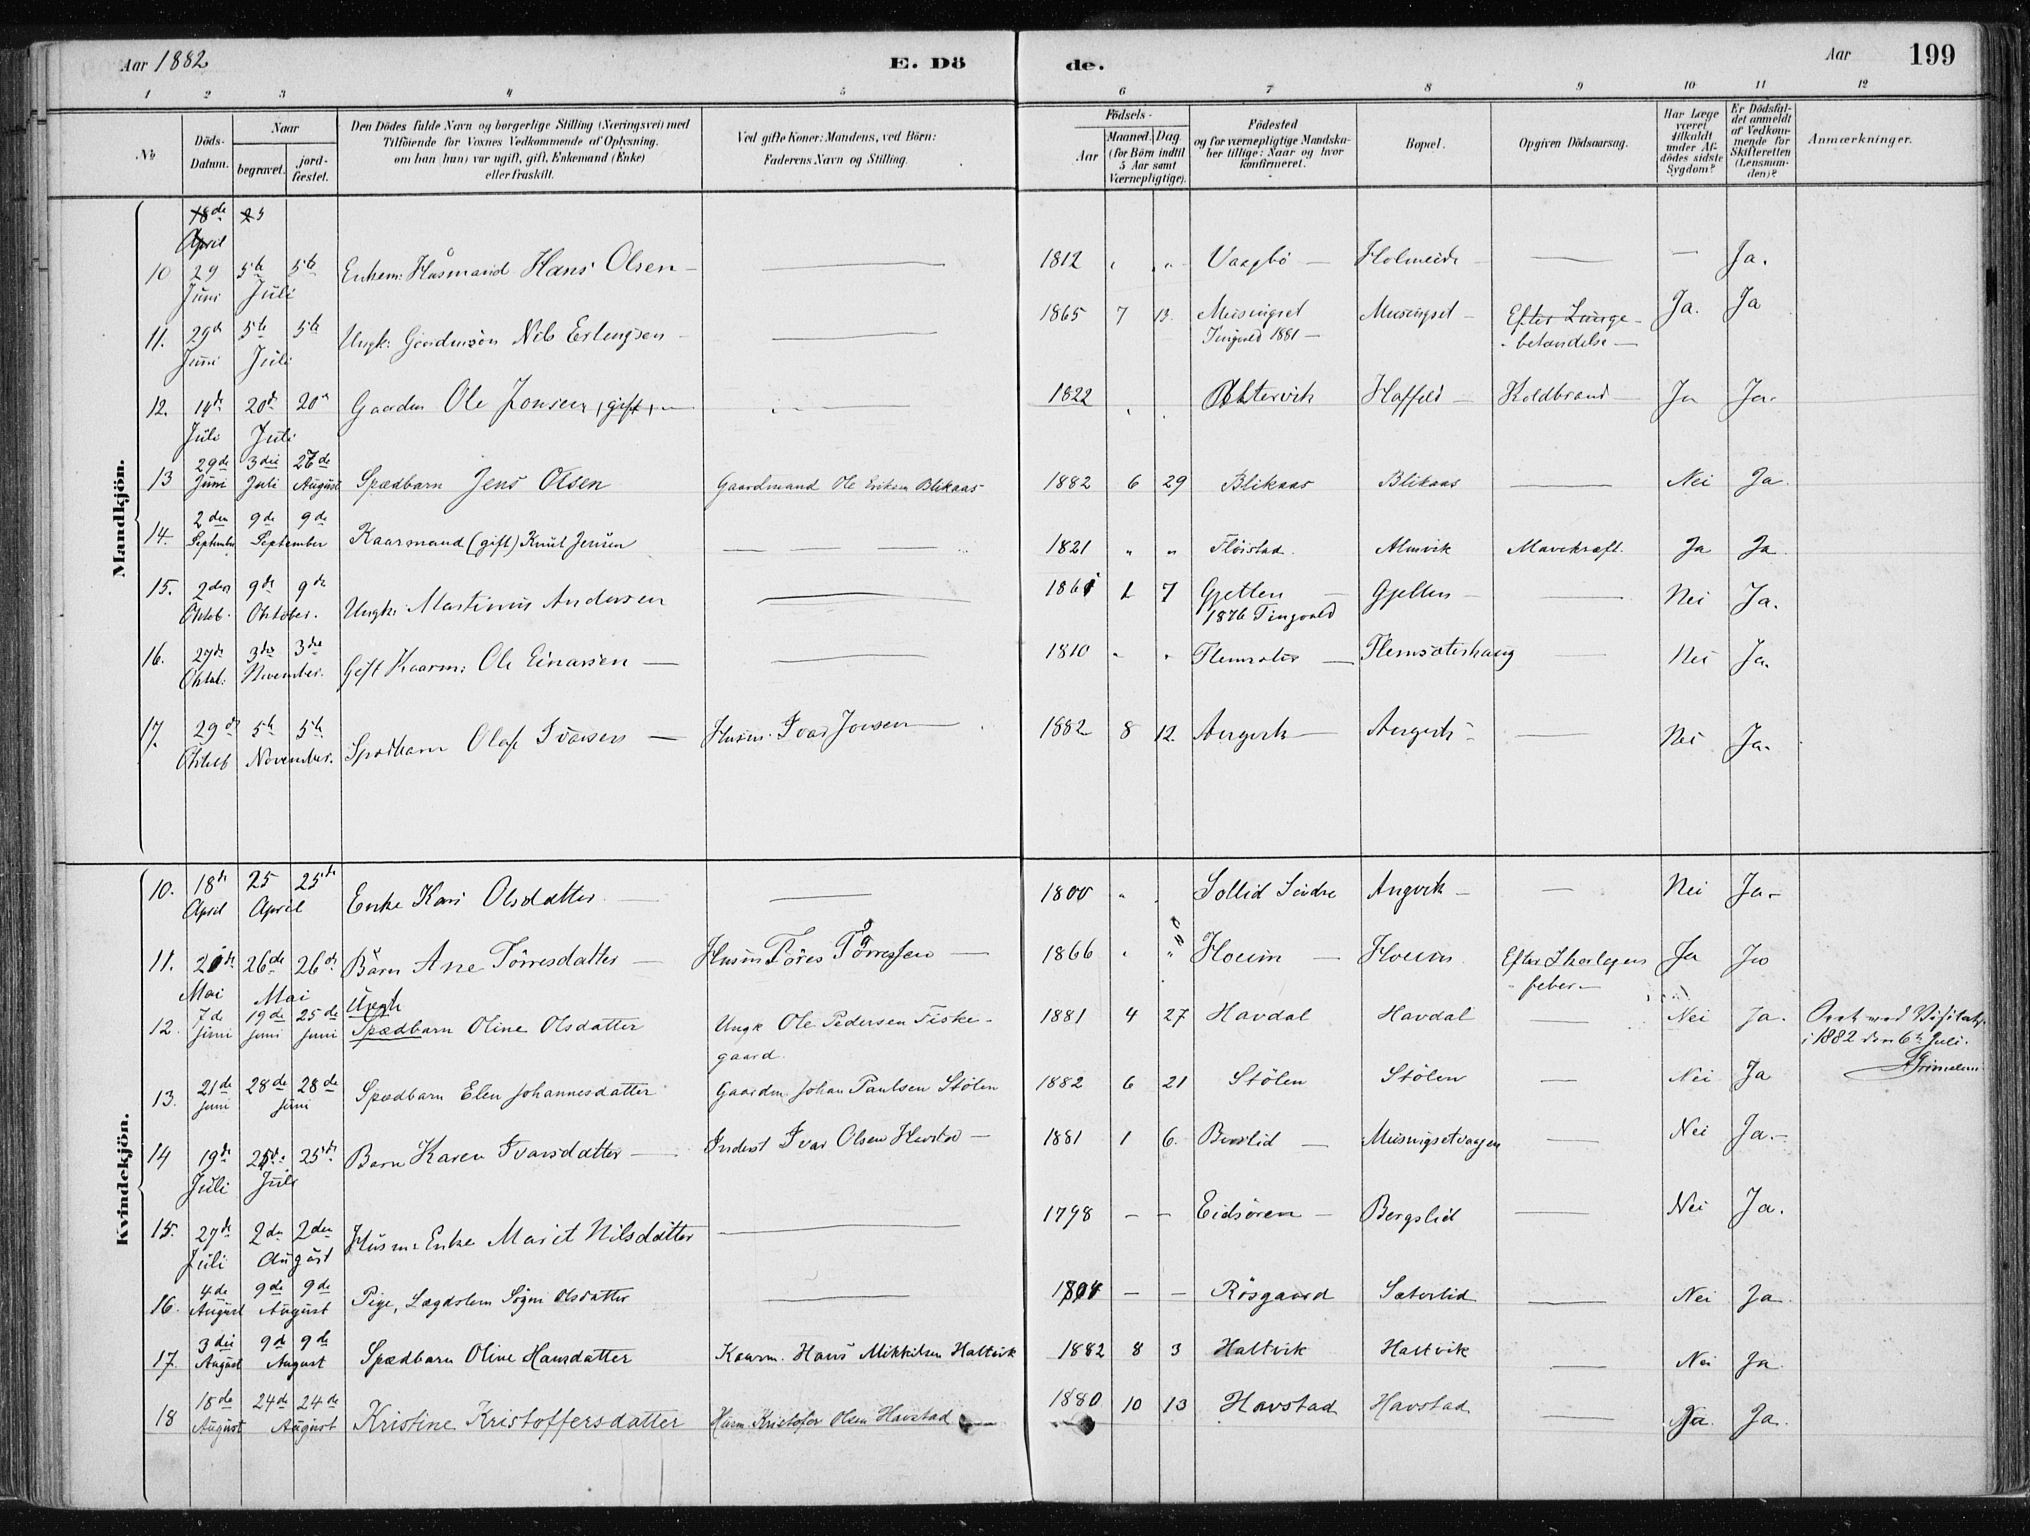 Aar 1882 E. Dö de. Aar 199
1 2 3 4 5 6 7 8 9 10 11 12
No Döds-Datum. Naar begravet. jordfæstet. Den Dödes fulde Navn og borgerlige Stilling (Næringsvei) med Tilföiende for Voxnes Vedkommende af Oplysning. om han (hun) var ugift, gift, Enkemand (Enke) eller fraskilt. Ved gifte Koner: Mandens, ved Börn: Faderens Navn og Stilling. Födsels- Aar Maaned. Dag. (for Börn indtil 5 Aar samt Værnepligtige). Födested og for værnepligtige Mandskaber tillige: Naar og hvor konfirmeret. Bopæl. Opgiven Dödsaarsag. Har Læge været tilkaldt under Afdödes sidste Sygdom? Er Dödsfaldet anmeldt af Vedkommende for Skifteretten (Lensmanden)? Anmærkninger.
Mandkjön.
18de April 23
10 29 Juni 5te 5te Juli Enkem: Húsmand Hans Olsen — 1812 " " Vaagbö — Holmeide — — Ja.
11. 29d Juni 5te 5te Juli Ungk: Gaardmsön Nils Erlingsen — 1865 7 13. Meisingset Tingvold 1881 — Meisingset — Efter Lunge-betændelse — Ja. Ja
12. 14de Juli 20d 20d Juli Gaardm Ole Jonsen, (gift) — 1822 Haffeld — Koldbrand Ja Ja.
13 29de Juni 3die Juli 27de August Spædbarn Jens Olsen Gaardmand Ole Eriksen Blikaas 1882 6 29 Blikaas Blikaas — Nei Ja.
14. 2den September 9de 9de September Kaarmand (gift) Knut Jensen — 1821 " " Flöistad. Almvik Mavekræft. Ja Ja
15. 2den Oktob. 9de 9de Oktober. Ungk: Martinus Andersen — 1861 1 7 Gjetten 1876 Tingvold Gjetten — Nei Ja.
16. 27de Oktob: 3die 3die November. Gift Kaarm: Ole Einarsen — 1810 " " Flemsæter — Flemsæterhaug — Nei Ja.
17. 29de Oktob 5te 5te November. Spædbarn Olaf Ivarsen — Husm. Ivar Jonsen — 1882 8 12. Angvik — Angvik — Nei Ja.
Kvindekjön.
10. 18de April 25 25de April Enke Kari Olsdatter. — 1800 " Sollid Söndre Angvik — — Nei Ja.
11. 20de Mai 26de 26de Mai Barn Ane Törresdatter — Husm Töres Törressen — 1866 " " Hoem — Hoem. Efter Skarlagens feber — Ja Ja
12. 7de Juni 19de Juni 25de Juni Uægt Spædbarn Oline Olsdatter Ungk Ole Pedersen Fiskegaard. 1881 4 27 Havdal Havdal — Nei Ja. 1882 den 6te Juli.
13. 21de Juni 28de 28de Juni Spædbarn Elen Johannesdatter Gaardm. Johan Paulsen Stölen 1882 6 21 Stölen Stölen — Nei Ja
14 19de Juli 25de 25de Juli Barn Karen Ivarsdatter — Inderst Ivar Olsen — 1881 1 6. — Meisingsetvaagen — Nei Ja.
15. 27de Juli 2den 2den August Husm: Enke Marit Nilsdatter — 1798 — — Eidsören — Bergslid — Nei Ja.
16. 4de August 9de 9de August Pige, Lægdslem Olsdatter — 1804 — — Rösgaard Sæterlid — Nei Ja.
17. 3die August 9de 9de August Spædbarn Oline Hansdatter Kaarm. Hans Mikkelsen Haltvik 1882 8 3 Haltvik Haltvik — Nei Ja.
18 18de August 24de 24de August Kristine Kristoffersdatter Husm. Kristofer Olsen Havstad — 1880 10 13 Havstad Havstad — Ja. Ja.